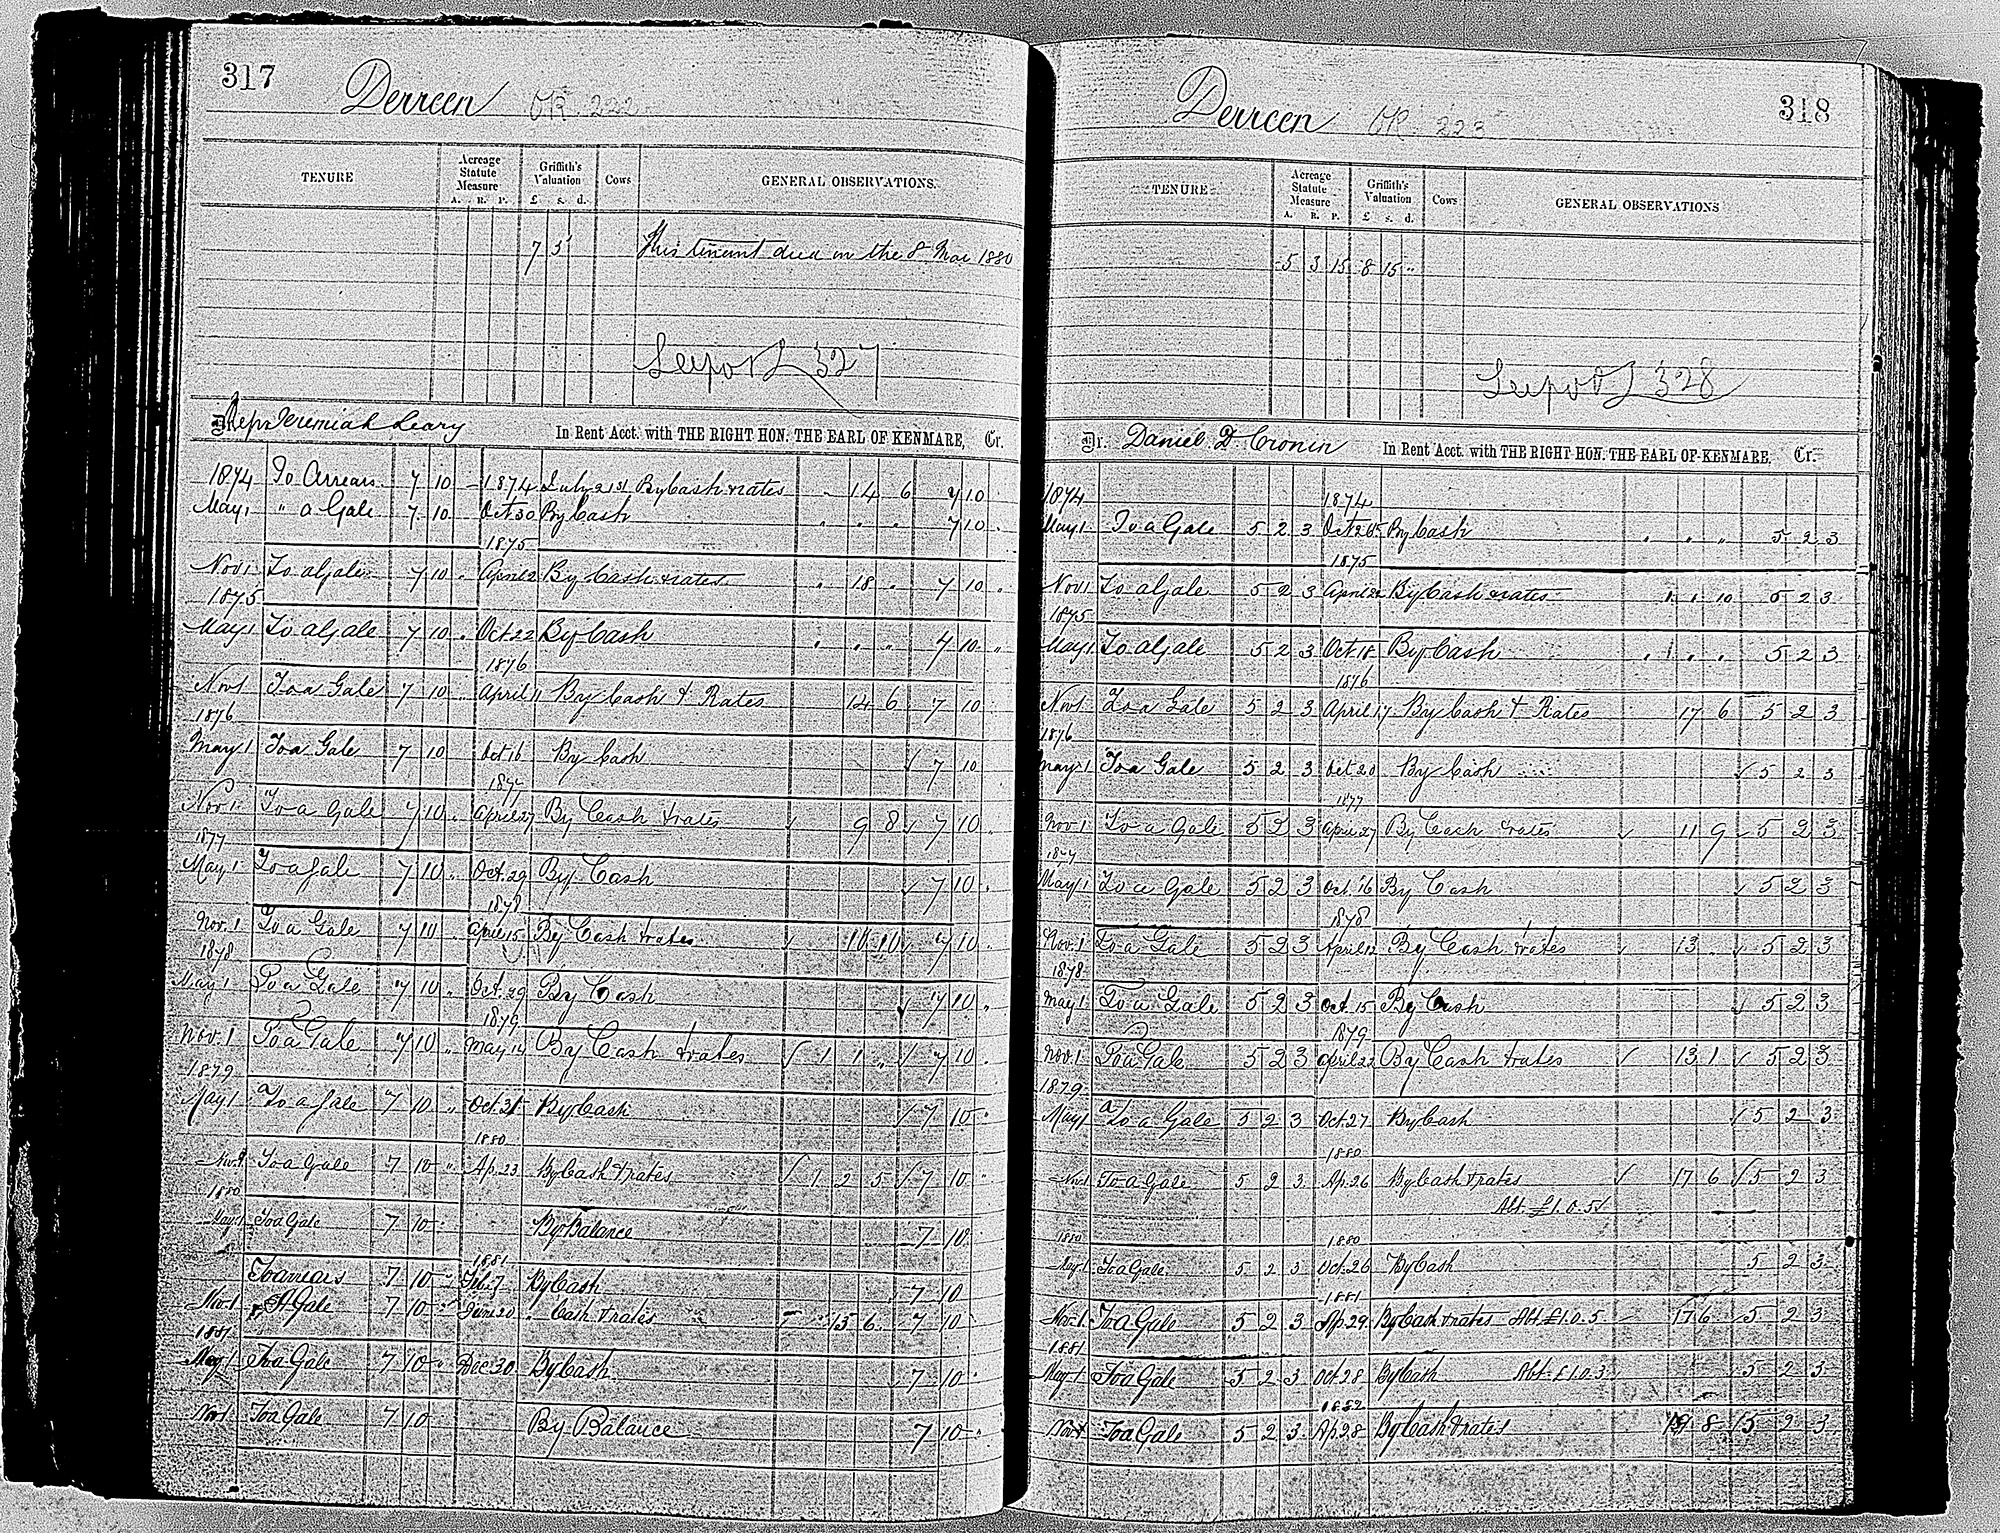 317
Derreen OR 222
TENURE Acreage Statute Measure A. R. P. Griffith's Valuation £ s. d. Cows GENERAL OBSERVATIONS.
7 5 This tenant died on the 8 Mar 1880
See por L 327
Dr. Reps Jeremiah Leary In Rent Acct. with THE RIGHT HON. THE EARL OF KENMARE, Cr.
1874 To Arrears 7 10 - 1874 July 21st By Cash & rates 14 6 7 10
May 1 " a Gale 7 10 Oct. 30 By Cash " " " 7 10
1875
Nov 1 To a Gale 7 10 " April 2 By Cash & rates " 18 " 7 10 "
1875
May 1 To a Gale 7 10 " Oct. 22 By Cash " " " 7 10 "
1876
Nov 1 To a Gale 7 10 " April 11 By Cash & Rates 14 6 7 10
1876
May 1 To a Gale 7 10 Oct 16 By Cash ✓ 7 10
1877
Nov 1 To a Gale 7 10 " April 27 By Cash & rates ✓ 9 8 ✓ 7 10 "
1877
May 1 To a Gale 7 10 " Oct. 29 By Cash ✓ 7 10 "
1878
Nov. 1 To a Gale 7 10 April 15 By Cash & rates ✓ 10 10 ✓ 7 10 "
1878
May 1 To a Gale 7 10 " Oct. 29 By Cash ✓ 7 10 "
1879
Nov. 1 To a Gale 7 10 " May 14 By Cash & rates ✓ 1 1 " ✓ 7 10 "
1879
May 1 To a Gale 7 10 " Oct. 31 By Cash ✓ 7 10 "
1880
Nov 1 To a Gale 7 10 " Ap. 23 By Cash & rates ✓ 1 2 5 ✓ 7 10 "
1880
May 1 To a Gale 7 10 " By Balance 7 10 "
1881
To arrears 7 10 " Feb. 7 By Cash 7 10
Nov. 1 & A Gale 7 10 " June 20 " Cash & rates 13 6 7 10
1881
May 1 To a Gale 7 10 " Dec. 30 By Cash 7 10 "
Nov 1 To a Gale 7 10 By Balance 7 10 "
318
Derreen OR 223
TENURE Acreage Statute Measure A. R. P. Griffith's Valuation £ s. d. Cows GENERAL OBSERVATIONS
5 3 15 8 15 "
See por L 328
Dr. Daniel D. Cronin In Rent Acct. with THE RIGHT HON. THE EARL OF KENMARE, Cr.
1874 1874
May 1 To a Gale 5 2 3 Oct 26 By Cash " " " 5 2 3
1875
Nov 1 To a Gale 5 2 3 April By Cash & rates 1 1 10 5 2 3
1875
May 1 To a Gale 5 2 3 Oct. 18 By Cash " " " 5 2 3
1876
Nov 1 To a Gale 5 2 3 April 17 By Cash & Rates 17 6 5 2 3
1876
May 1 To a Gale 5 2 3 Oct 20 By Cash ✓ 5 2 3
1877
Nov. 1 To a Gale 5 2 3 April 27 By Cash & rates ✓ 11 9 ✓ 5 2 3
1877
May 1 To a Gale 5 2 3 Oct. 16 By Cash ✓ 5 2 3
1878
Nov. 1 To a Gale 5 2 3 April 12 By Cash & rates ✓ 13 ✓ 5 2 3
1878
May 1 To a Gale 5 2 3 Oct. 15 By Cash ✓ 5 2 3
1879
Nov. 1 To a Gale 5 2 3 April 22 By Cash & rates ✓ 13 1 ✓ 5 2 3
1879
May 1 To a Gale 5 2 3 Oct. 27 By Cash ✓ 5 2 3
1880
Nov 1 To a Gale 5 2 3 Ap. 26 By Cash & rates ✓ 17 6 ✓ 5 2 3
Abt. £1.0.5 ✓
1880 1880
May 1 To a Gale 5 2 3 Oct. 26 By Cash 5 2 3
1881
Nov. 1 To a Gale 5 2 3 Ap. 29 By Cash & rates Abt. £1.0.5 17 6 ✓ 5 2 3
1881
May 1 To a Gale 5 2 3 Oct. 28 By Cash Abt. £1.0.3 5 2 3
1882
Nov 1 To a Gale 5 2 3 Ap. 28 By Cash & rates 19 8 ✓ 5 2 3